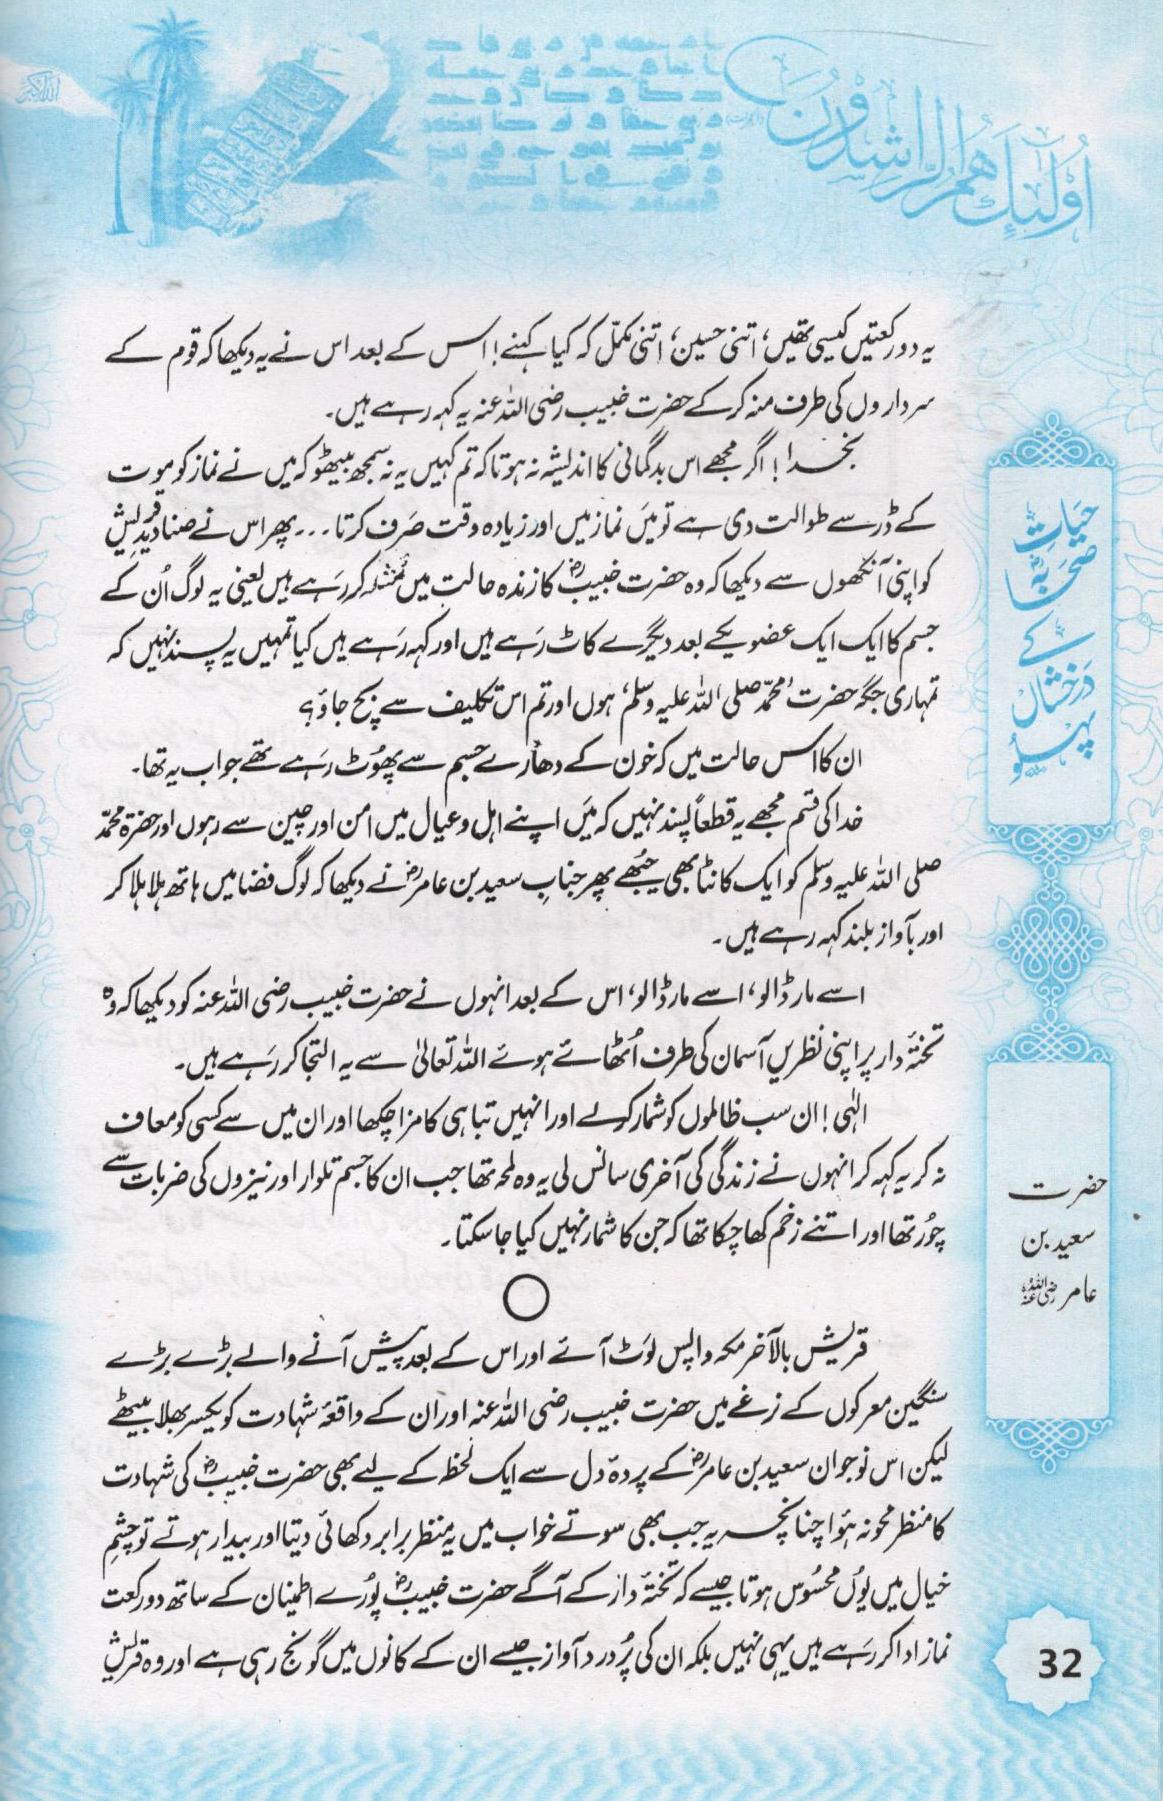 اُولٰٓئِكَ هُمُ الرّٰشِدُوْنَ
یہ دو رکعتیں کیسی تھیں؛ اتنی حسین، اتنی مکمّل کہ کیا کہنے! اس کے بعد اس نے یہ دیکھا کہ قوم کے
سرداروں کی طرف منہ کر کے حضرت خبیب رضی اللہ عنہ یہ کہہ رہے ہیں۔
بخدا! اگر مجھے اس بدگمانی کا اندیشہ نہ ہوتا کہ تم کہیں یہ نہ سمجھ بیٹھو کہ میں نے نماز کو موت
کے ڈر سے طوالت دی ہے تو میَں نماز میں اور زیادہ وقت صَرف کرتا ... پھر اس نے صنادیدِ قریش
کو اپنی آنکھوں سے دیکھا کہ وہ حضرت خبیبؓ کا زندہ حالت میں مُثلہ کر رہے ہیں یعنی یہ لوگ اُن کے
جسم کا ایک ایک عضو یکے بعد دیگرے کاٹ رَہے ہیں اور کہہ رَہے ہیں کیا تمہیں یہ پسند نہیں کہ
تمہاری جگہ حضرت ’محمّد صلی اللہ علیہ وسلم‘ ہوں اور تم اس تکلیف سے بچ جاؤ؟
ان کا اس حالت میں کہ خون کے دھارے جسم سے پھوُٹ رہے تھے جواب یہ تھا۔
خدا کی قسم مجھے یہ قطعاً پسند نہیں کہ میَں اپنے اہل و عیال میں امن اور چین سے رہوں اور حضرۃ محمّد
صلی اللہ علیہ وسلم کو ایک کانٹا بھی چبُھے پھر جنابِ سعید بن عامرؓ نے دیکھا کہ لوگ فضا میں ہاتھ ہلا ہلا کر
اور بآواز بلند کہہ رہے ہیں۔
اسے مار ڈالو، اسے مار ڈالو، اس کے بعد انہوں نے حضرت خبیب رضی اللہ عنہ کو دیکھا کہ وہ
تختۂ دار پر اپنی نظریں آسمان کی طرف اُٹھائے ہوئے اللہ تعالیٰ سے یہ التجا کر رَہے ہیں۔
الٰہی! ان سب ظالموں کو شمار کر لے اور انہیں تباہی کا مزا چکھا اور ان میں سے کسی کو معاف
نہ کر یہ کہہ کر انہوں نے زندگی کی آخری سانس لی یہ وہ لمحہ تھا جب ان کا جسم تلوار اور نیزوں کی ضربات سے
چوُر تھا اور اتنے زخم کھا چکا تھا کہ جن کا شمار نہیں کیا جا سکتا۔
قریش بالآخر مکہ واپس لوَٹ آئے اور اس کے بعد پیش آنے والے بڑے بڑے
سنگین معرکوں کے نرغے میں حضرت خبیب رضی اللہ عنہ اور ان کے واقعۂ شہادت کو یکسر بھلا بیٹھے
لیکن اس نوجوان سعید بن عامرؓ کے پردۂ دل سے ایک لحظہ کے لیے بھی حضرت خبیبؓ کی شہادت
کا منظر محو نہ ہوُا چنانچہ یہ جب بھی سوتے خواب میں یہ منظر برابر دکھائی دیتا اور بیدار ہوتے تو چشمِ
خیال میں یوُں محسوُس ہوتا جیسے کہ تختۂ دار کے آگے حضرت خبیبؓ پوُرے اطمینان کے ساتھ دو رکعت
نماز ادا کر رَہے ہیں یہی نہیں بلکہ ان کی پُر درد آواز جیسے ان کے کانوں میں گونج رہی ہے اور وہ قریشِ
حَیاتِ
صحَابہؓ
کے
دَرخشاں
پہلوُ
حضرت
سعید بن
عامر رضی اللہ عنہ
32